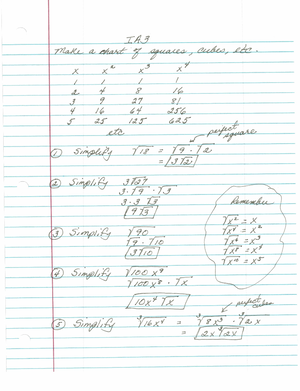 I.A.3
Make a chart of squares, cubes, etc.
x x² x³ x⁴
1 1 1 1
2 4 8 16
3 9 27 81
4 16 64 256
5 25 125 625
etc
perfect square
① Simplify √18 = √9 · √2
= 3√2
② Simplify 3√27
3·√9 · √3
3·3√3
9√3
Remember
√x² = x
√x⁴ = x²
√x⁶ = x³
√x⁸ = x⁴
√x¹⁰ = x⁵
③ Simplify √90
√9 · √10
3√10
④ Simplify √100x⁹
√100x⁸ · √x
10x⁴√x
perfect cubes
⑤ Simplify ³√16x⁴ = ³√8x³ · ³√2x
= 2x ³√2x